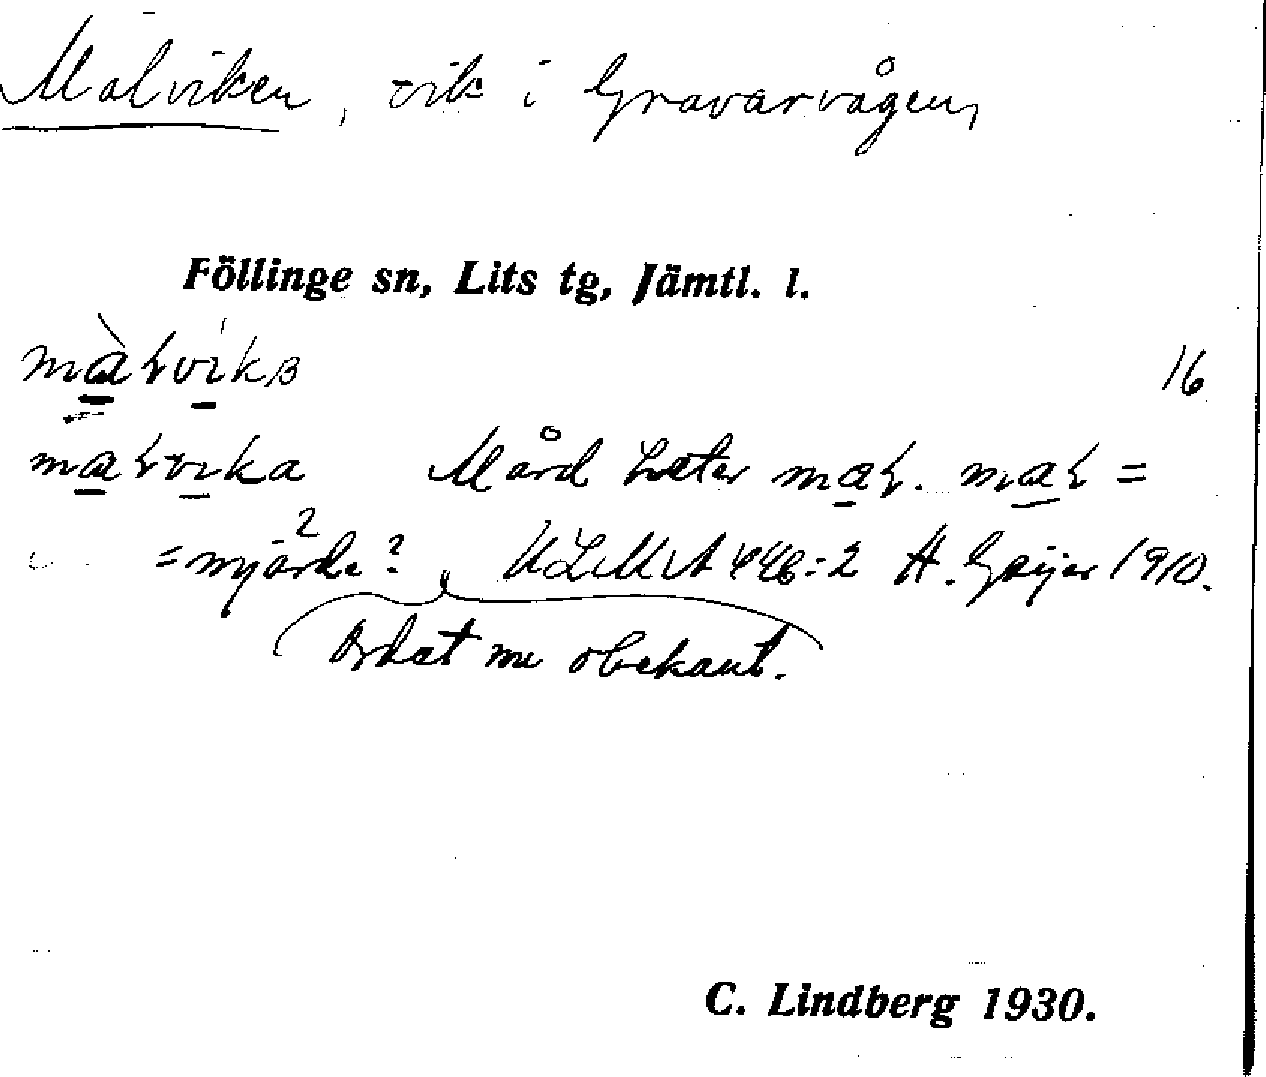 Malviken, vik i Gravarvågen,
Föllinge sn, Lits tg, Jämtl. l.
16
Mård heter maɽ. maɽ =
= mjärde? ULMA 446:2 H. Geijer 1910.
Ordet nu obekant.
C. Lindberg 1930.